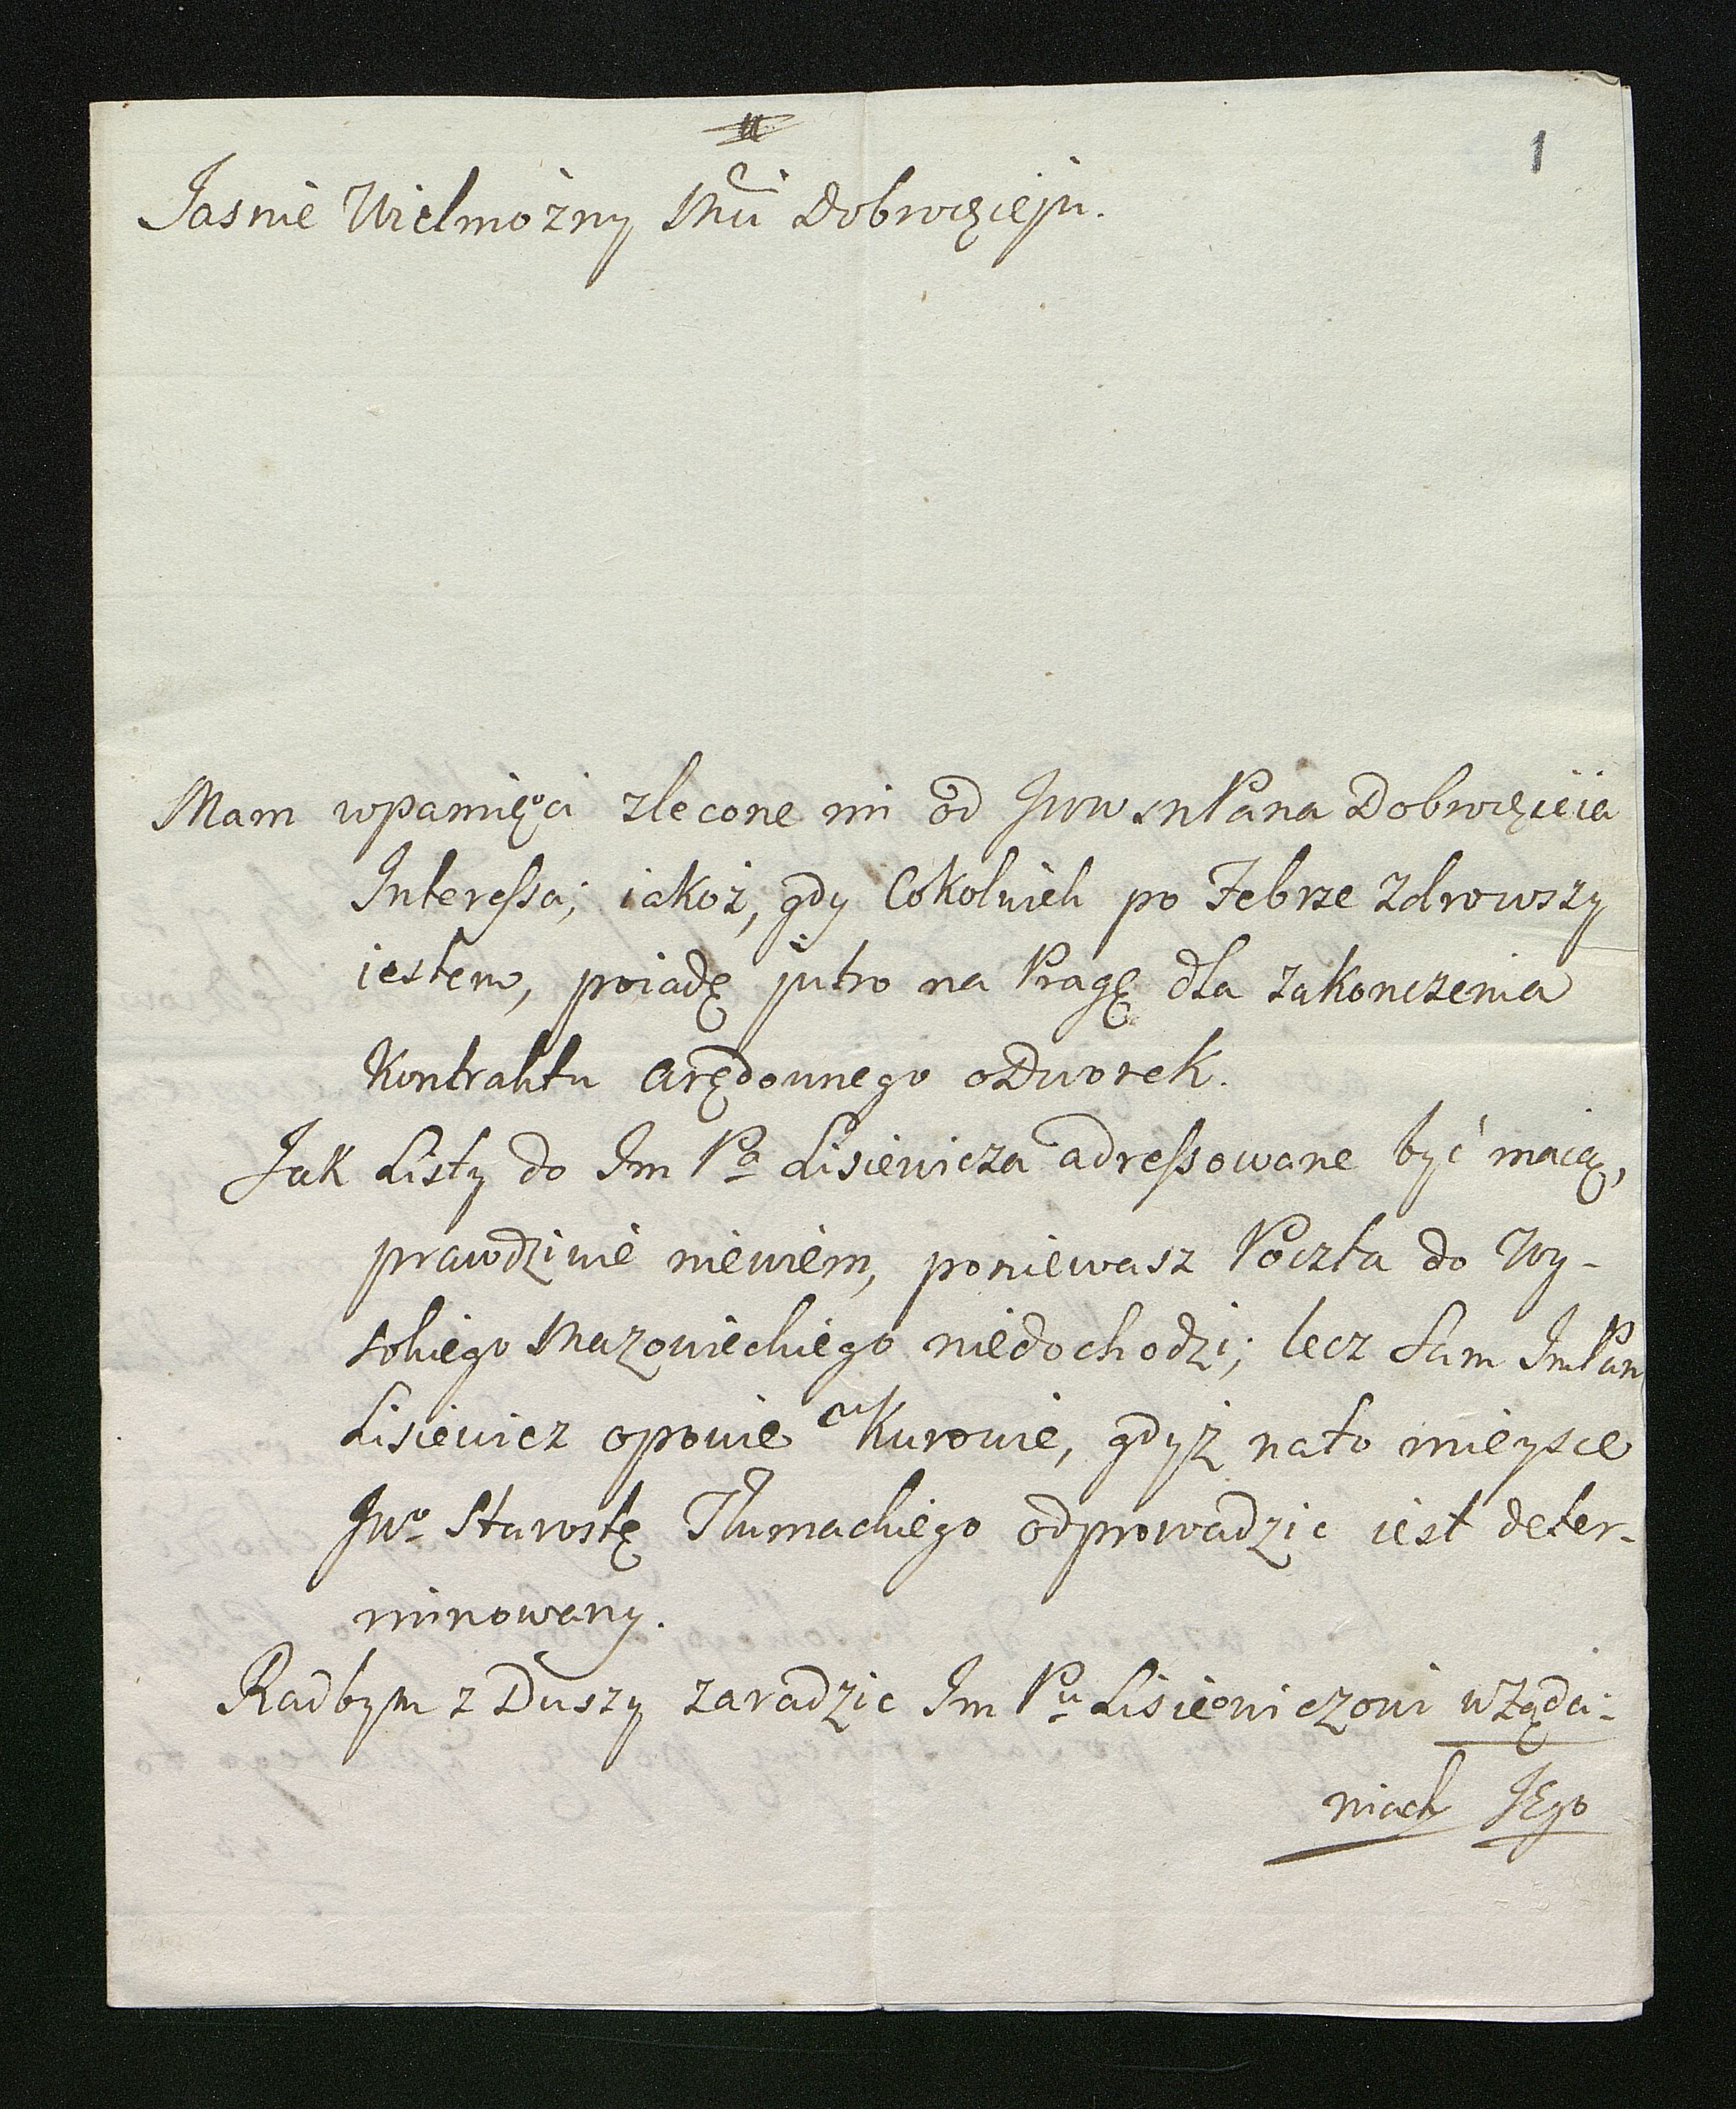 1
Jasnie Wielmożny Mci Dobrodzieju.
Mam wpamięci zlecone mi od JWW MPana Dobrodzieia
Interessa; iakoż, gdy Cokolwiek po Febrze zdrowszy
iestem, poiadę jutro na Pragę dla zakonczenia
Kontraktu Arędownego oDworek.
Jak Listy do Im Pa Lisiewicza adressowane być maią,
prawdziwie niewiem, poniewasz Poczta do Wy-
sokiego Mazowieckiego niedochodzi; lecz Sam ImPan
Lisiewicz opowie w Kurowie, gdyż nato mieysce
JWo Starostę Tłumackiego odprowadzic iest deter-
minowany.
Radbym z Duszy zaradzic Im Pu Lisiewiczowi wżąda-
niach JEgo